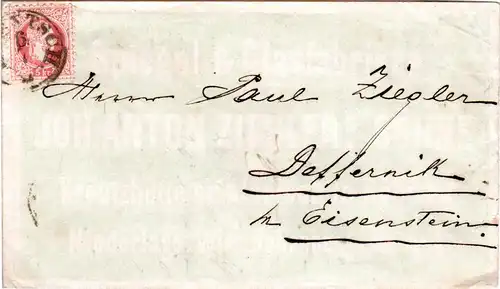 Herrn Paul Ziegler
Deffernik
in Eisenstein.